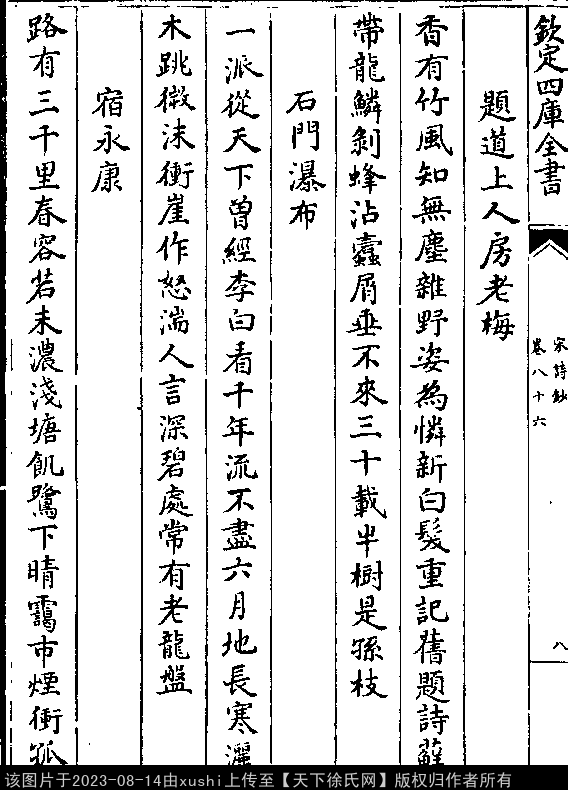 欽定四庫全書
宋詩鈔
卷八十六
八
題道上人房老梅
香有竹風知無塵雜野姿為憐新白髮重記舊題詩蘚
帶龍鱗剝蜂沾蠧屑垂不來三十載半樹是孫枝
石門瀑布
一派從天下曽經李白看千年流不盡六月地長寒灑
木跳微沫衝崖作怒湍人言深碧處常有老龍盤
宿永康
路有三千里春容若未濃淺塘飢鷺下晴靄市煙衝孤
该图片于2023-08-14由xushi上传至【天下徐氏网】版权归作者所有